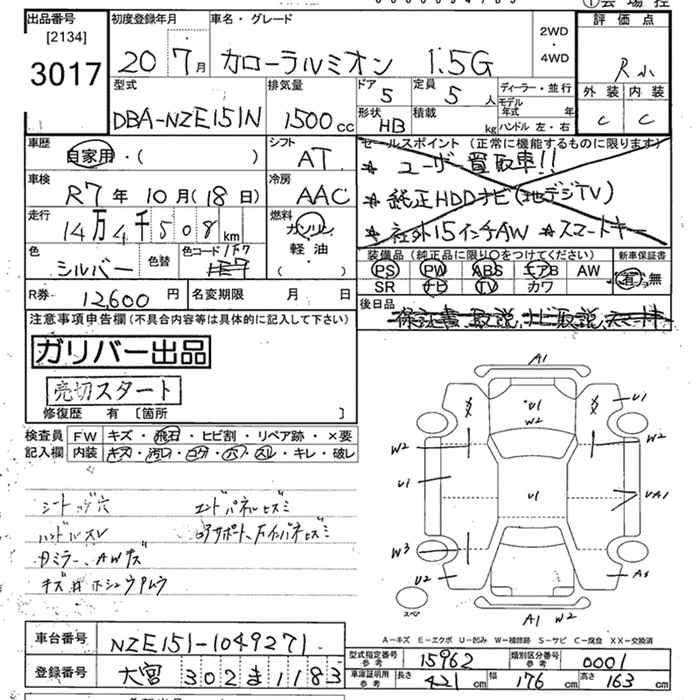 出品番号
[2134]
3017
初度登録年月
20 7月
車名・グレード
カローラルミオン 1.5G
2WD
・
4WD
評価点
R小
外装 内装
C C
型式
DBA-NZE151N
排気量
1500cc
ドア
5
定員
5人
形状
HB
積載
kg
ディーラー・並行
モデル
年式 年
ハンドル 左・右
車歴
自家用・( )
シフト
AT
セールスポイント (正常に機能するものに限ります)
★ ユーザー買取車!!
★ 純正HDDナビ(地デジTV)
★ 社外15インチAW ★スマートキー
車検
R7年10月(18日)
冷房
AAC
走行
14万4千508km
燃料
ガソリン
軽油
( ・ )
色
シルバー
色替
色コード
1F7
装備品 (純正品に限り○をつけてください)
PS PW ABS エアB AW
SR ナビ TV カワ
新車保証書
有・無
R券 12,600円
名変期限 月 日
後日品
保証書、取説、ナビ取説、
注意事項申告欄(不具合内容等は具体的に記入して下さい)
ガリバー出品
売切スタート
修復歴 有 [箇所 ]
検査員
記入欄
FW キズ・飛石・ヒビ割・リペア跡・×要
内装 キズ・汚レ・コゲ・穴・スレ・キレ・破レ
シートコゲ穴
エンドパネルヒズミ
ハンドルスレ
カミラー、AWキズ
A1
U1
W2
U1
W2
W2
U1
U1
UA1
W3
U2
A1 W2
スペア
A-キズ E-エクボ U-凹み W-補修跡 S-サビ C-腐食 XX-交換済
車台番号
NZE151-1049271
登録番号
大宮 302 ま 1183
型式指定番号
参考
15962
類別区分番号
参考
0001
車庫証明用
参考
長さ 421cm
幅 176cm
高さ 163cm